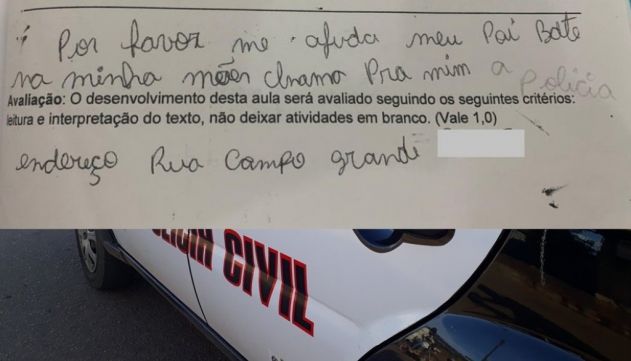 Por favor me ajuda meu Pai Bate
na minha mãen chnamo Pra mim a Policia
Avaliação: O desenvolvimento desta aula será avaliado seguindo os seguintes critérios:
leitura e interpretação do texto, não deixar atividades em branco. (Vale 1,0)
endereço Rua Campo grande
CIVIL